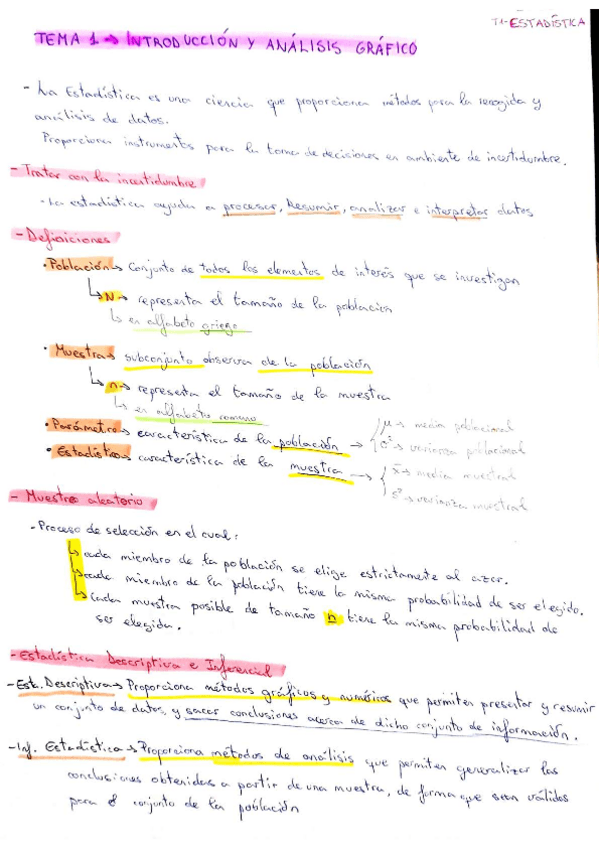 T1-ESTADÍSTICA
TEMA 1 → INTRODUCCIÓN Y ANÁLISIS GRÁFICO
- La Estadística es una ciencia que proporciona métodos para la recogida y
análisis de datos.
Proporciona instrumentos para la toma de decisiones en ambiente de incertidumbre.
- Tratar con la incertidumbre
· La estadística ayuda a procesar, Resumir, analizar e interpretar datos
- Definiciones
· Población → Conjunto de todos los elementos de interés que se investigan
↳ N → representa el tamaño de la población
↳ en alfabeto griego
· Muestra → subconjunto observa de la población
↳ n → representa el tamaño de la muestra
↳ en alfabeto romano
· Parámetro → característica de la población → { μ → media poblacional
σ² → varianza poblacional
· Estadístico → característica de la muestra → { x̄ → media muestral
s² → varianza muestral
- Muestreo aleatorio
- Proceso de selección en el cual:
↳ cada miembro de la población se elige estrictamente al azar.
↳ cada miembro de la población tiene la misma probabilidad de ser elegido.
↳ Cada muestra posible de tamaño n tiene la misma probabilidad de
ser elegida.
- Estadística Descriptiva e Inferencial
- Est. Descriptiva → Proporciona métodos gráficos y numéricos que permiten presentar y resumir
un conjunto de datos, y sacar conclusiones acerca de dicho conjunto de información.
- Inf. Estadística → Proporciona métodos de análisis que permiten generalizar las
conclusiones obtenidas a partir de una muestra, de forma que sean válidos
para el conjunto de la población